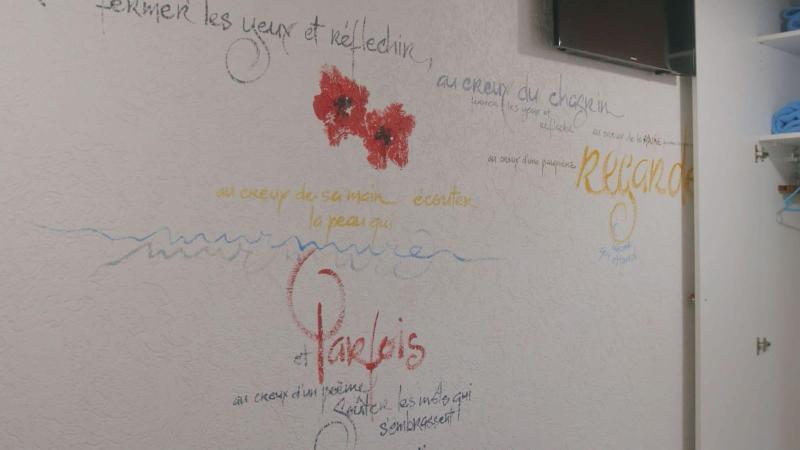 fermer les yeux et réfléchir,
au creux du chagrin
fermer les yeux et
réfléchir
au creux de la
au creux d'une paupière
Regard
au creux de sa main écouter
la peau qui
murmure
mur
et Parfois
au creux d'un poème
Goûter les mots qui
s'embrassent!